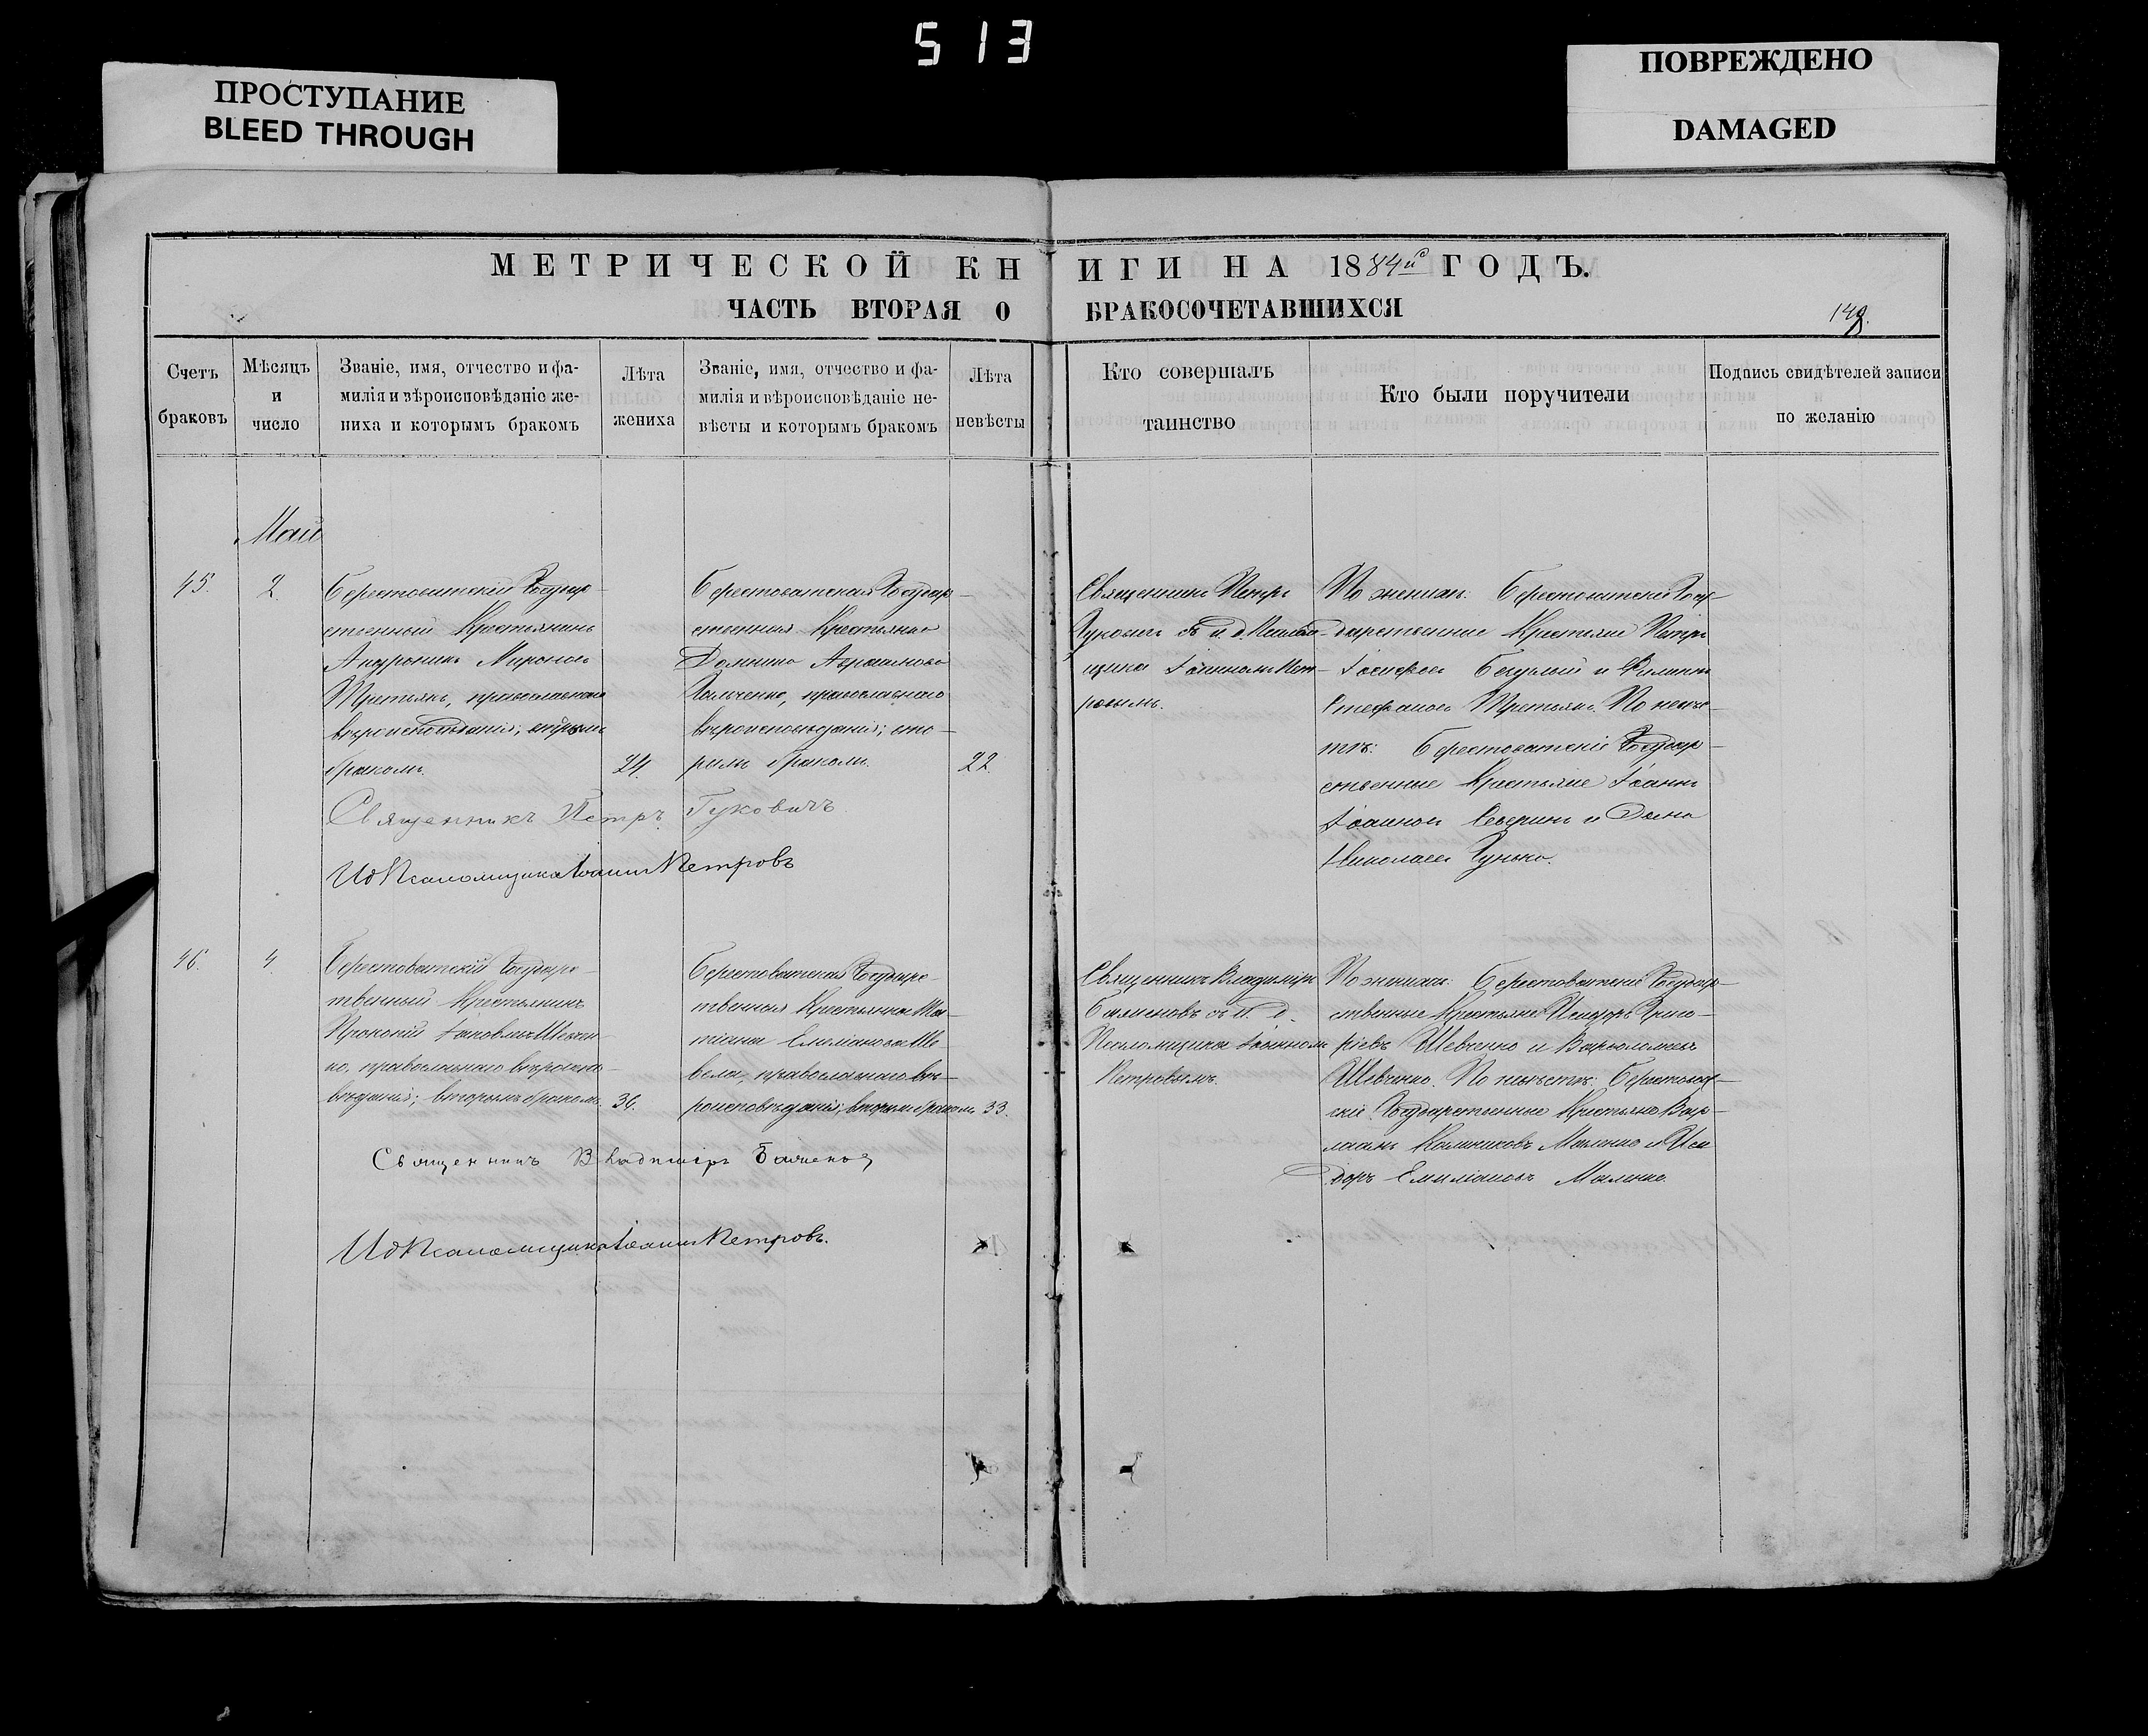 513
ПРОСТУПАНИЕ
BLEED THROUGH
ПОВРЕЖДЕНО
DAMAGED
МЕТРИЧЕСКОЙ КНИГИ НА 1884й ГОДЪ.
ЧАСТЬ ВТОРАЯ О БРАКОСОЧЕТАВШИХСЯ
149.
Счетъ
браковъ
Мѣсяцъ
и
число
Званіе, имя, отчество и фа-
милія и вѣроисповѣданіе же-
ниха и которымъ бракомъ
Лѣта
жениха
Званіе, имя, отчество и фа-
милія и вѣроисповѣданіе не-
вѣсты и которымъ бракомъ
Лѣта
невѣсты
Кто совершалъ
таинство
Кто были поручители
Подпись свидѣтелей записи
по желанію
Май
45.
2.
Берестоватскій Государ-
ственный Крестьянинъ
Андроникъ Мироновъ
Третьякъ, православнаго
вѣроисповѣданія; вторымъ
бракомъ.
24.
Берестоватская Государ-
ственная Крестьянка
Домника Авраамова
православнаго
вѣроисповѣданія; вто-
рымъ бракомъ.
22.
Священникъ Петръ
Гуковичъ съ и. д. Псало-
мщика Іоанномъ Пет-
ровымъ.
По женихѣ: Берестоватскіе Госу-
дарственные Крестьяне Петръ
Іосифовъ и Филиппъ
Стефановъ Третьякъ. По невѣ-
стѣ: Берестоватскіе Государ-
ственные Крестьяне Іоаннъ
Іоанновъ и
Николаевъ Гунько.
Священникъ Петръ Гуковичъ
И д Псаломщика Іоаннъ Петровъ
46.
4.
Берестоватскій Государс-
твенный Крестьянинъ
Прокопій Іаковлевъ Шевчен-
ко, православнаго вѣроиспо-
вѣданія; вторымъ бракомъ.
36.
Берестоватская Государс-
твенная Крестьянка Та-
тіана Емиліанова Ше-
вела, православнаго вѣ-
роисповѣданія; вторымъ бракомъ.
33.
Священникъ Владиміръ
Баженовъ съ и. д.
Псаломщика Іоанномъ
Петровымъ.
По женихѣ: Берестоватскіе Государ-
ственные Крестьяне Исидоръ Григо-
ріевъ Шевченко и Варѳоломей
Шевченко. По невѣстѣ: Берестоват-
скіе Государственные Крестьяне Вар-
лаамъ Калиниковъ Маленко и Иси-
доръ Емиліановъ Маленко.
Священникъ Владиміръ Баженовъ
И д Псаломщика Іоаннъ Петровъ.